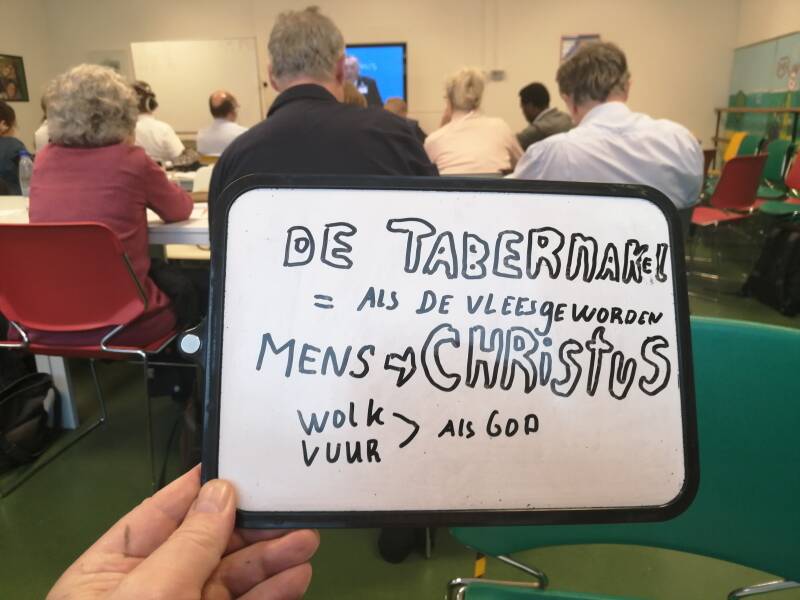 DE TABERNAKEL
= ALS DE VLEESGEWORDEN
MENS ⇨ CHRISTUS
WOLK
VUUR > ALS GOD